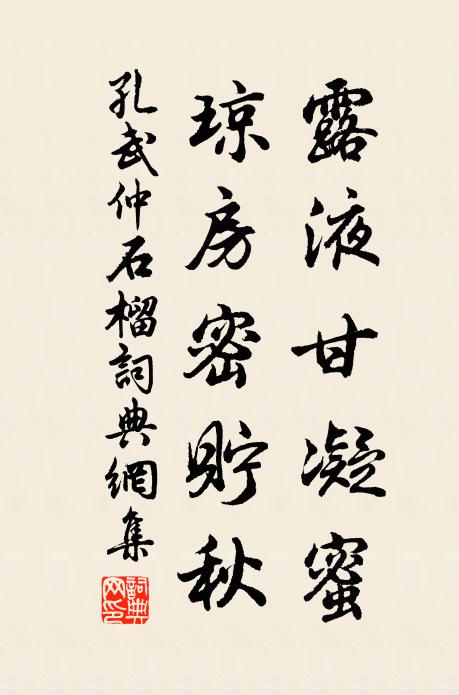 露液甘凝蜜
琼房密貯秋
孔武仲石榴詞典網集
詞典网印